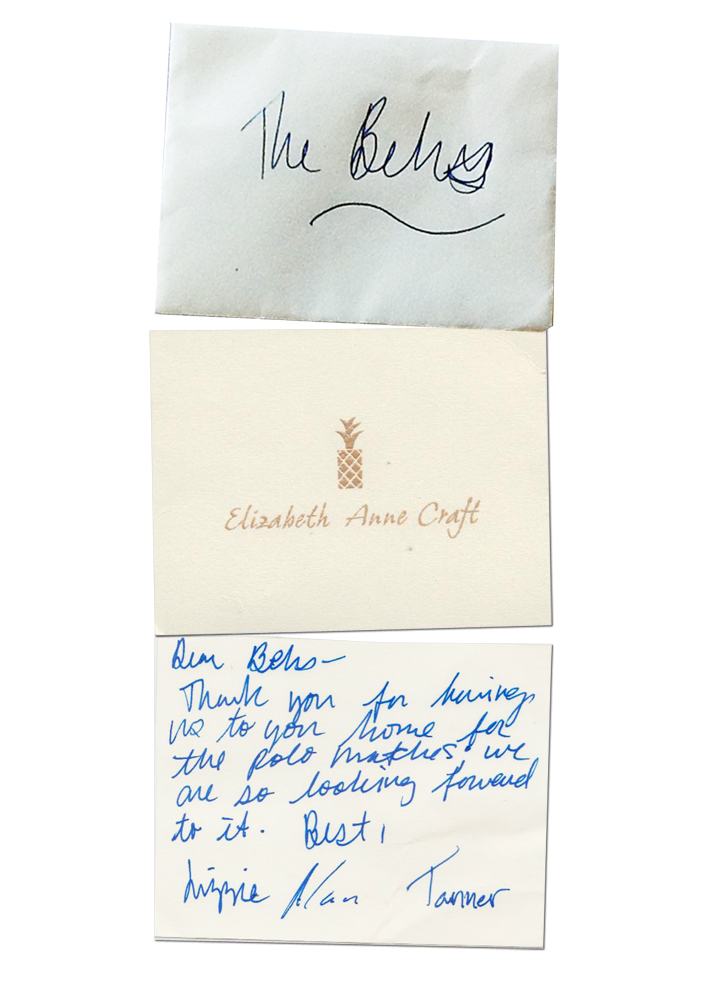 The Behs
Elizabeth Anne Craft
Dear Behs-
Thank you for having
us to your home for
the polo matches, we
are so looking forward
to it. Best,
Lizzie Nan Tanner